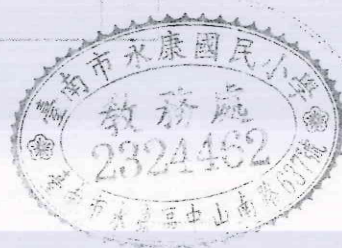 臺南市永康國民小學
教務處
2324462
臺南市永康區中山南路637號